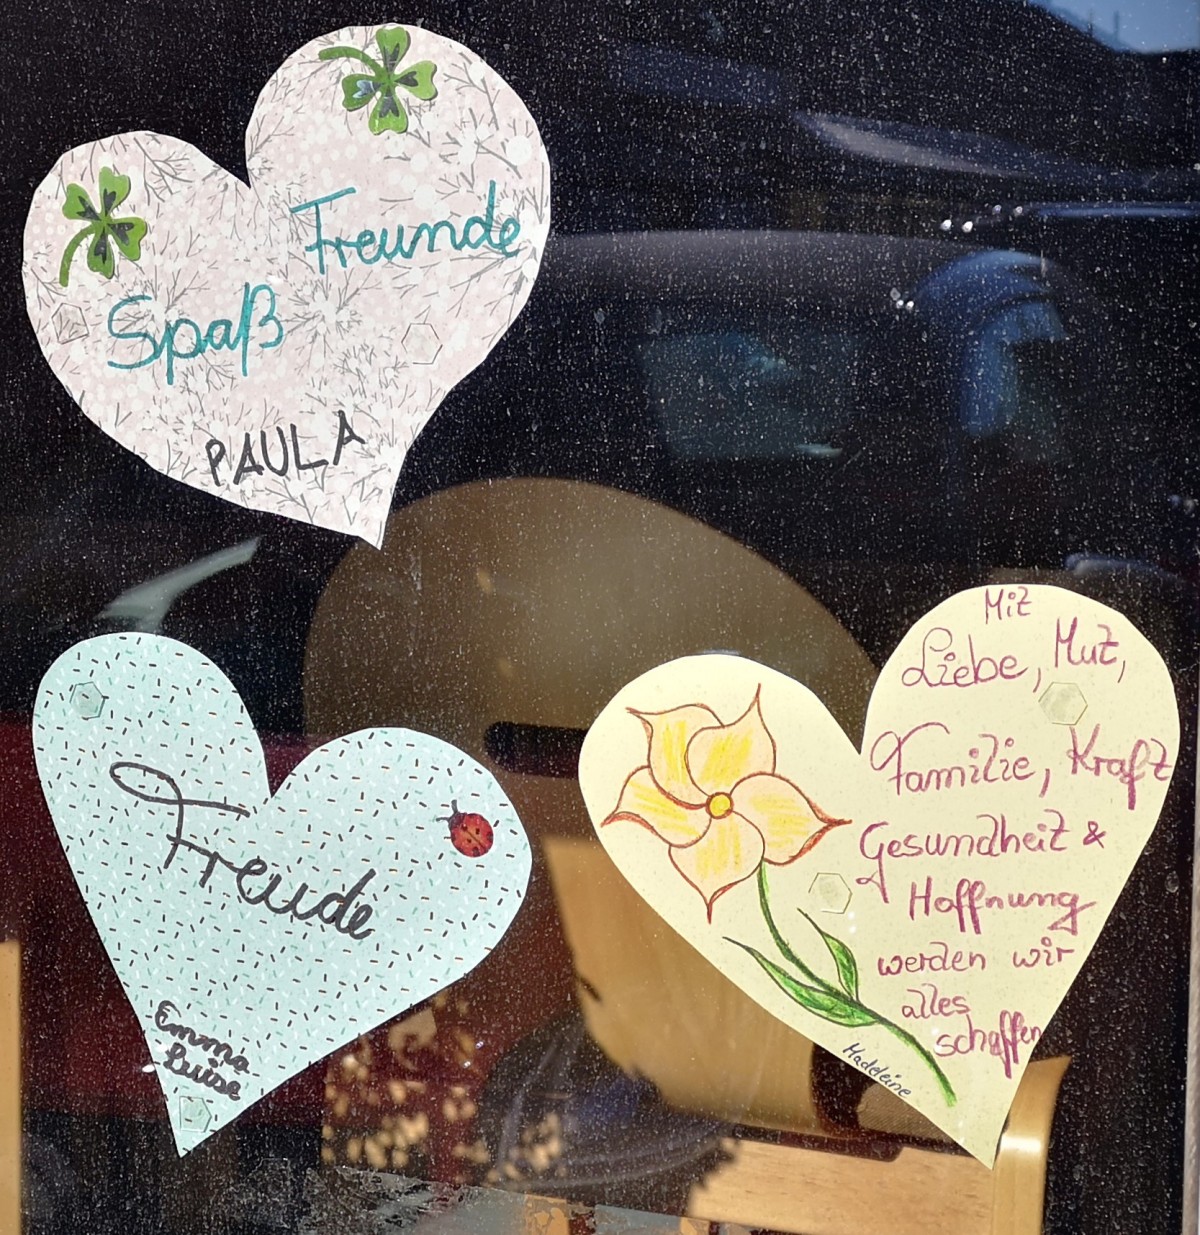 Freunde
Spaß
PAULA
Freude
Emma
Luise
Mit
Liebe, Mut,
Familie, Kraft
Gesundheit &
Hoffnung
werden wir
alles
schaffen
Madeleine